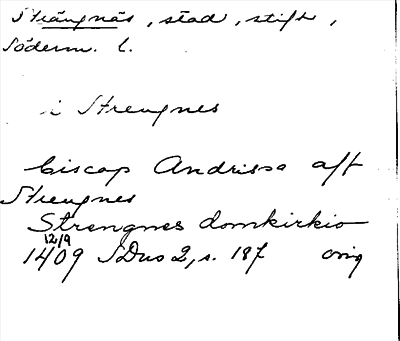 Strängnäs, stad, stift,
Söderm. l.
i Strengnes
biscop Andrissa aff
Strengnes
Strengnes domkirkio
12/9
1409 SDns 2, s. 187 orig